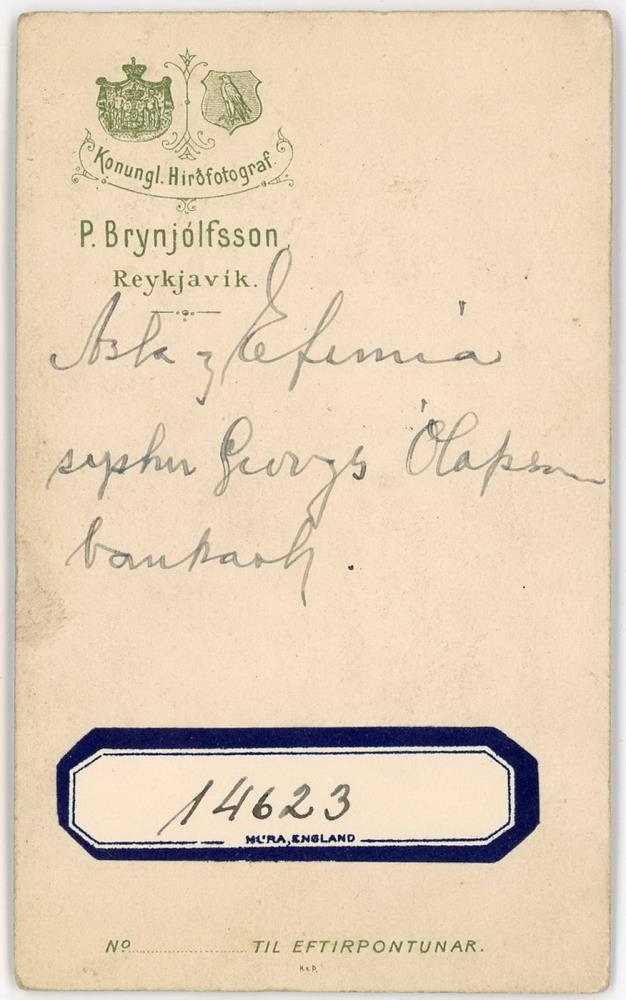 Konungl. Hirðfotograf
P. Brynjólfsson,
Reykjavík.
Asta og Efemia
systur Georgs Ólafsson
bankastj.
14623
ENGLAND
No TIL EFTIRPONTUNAR.